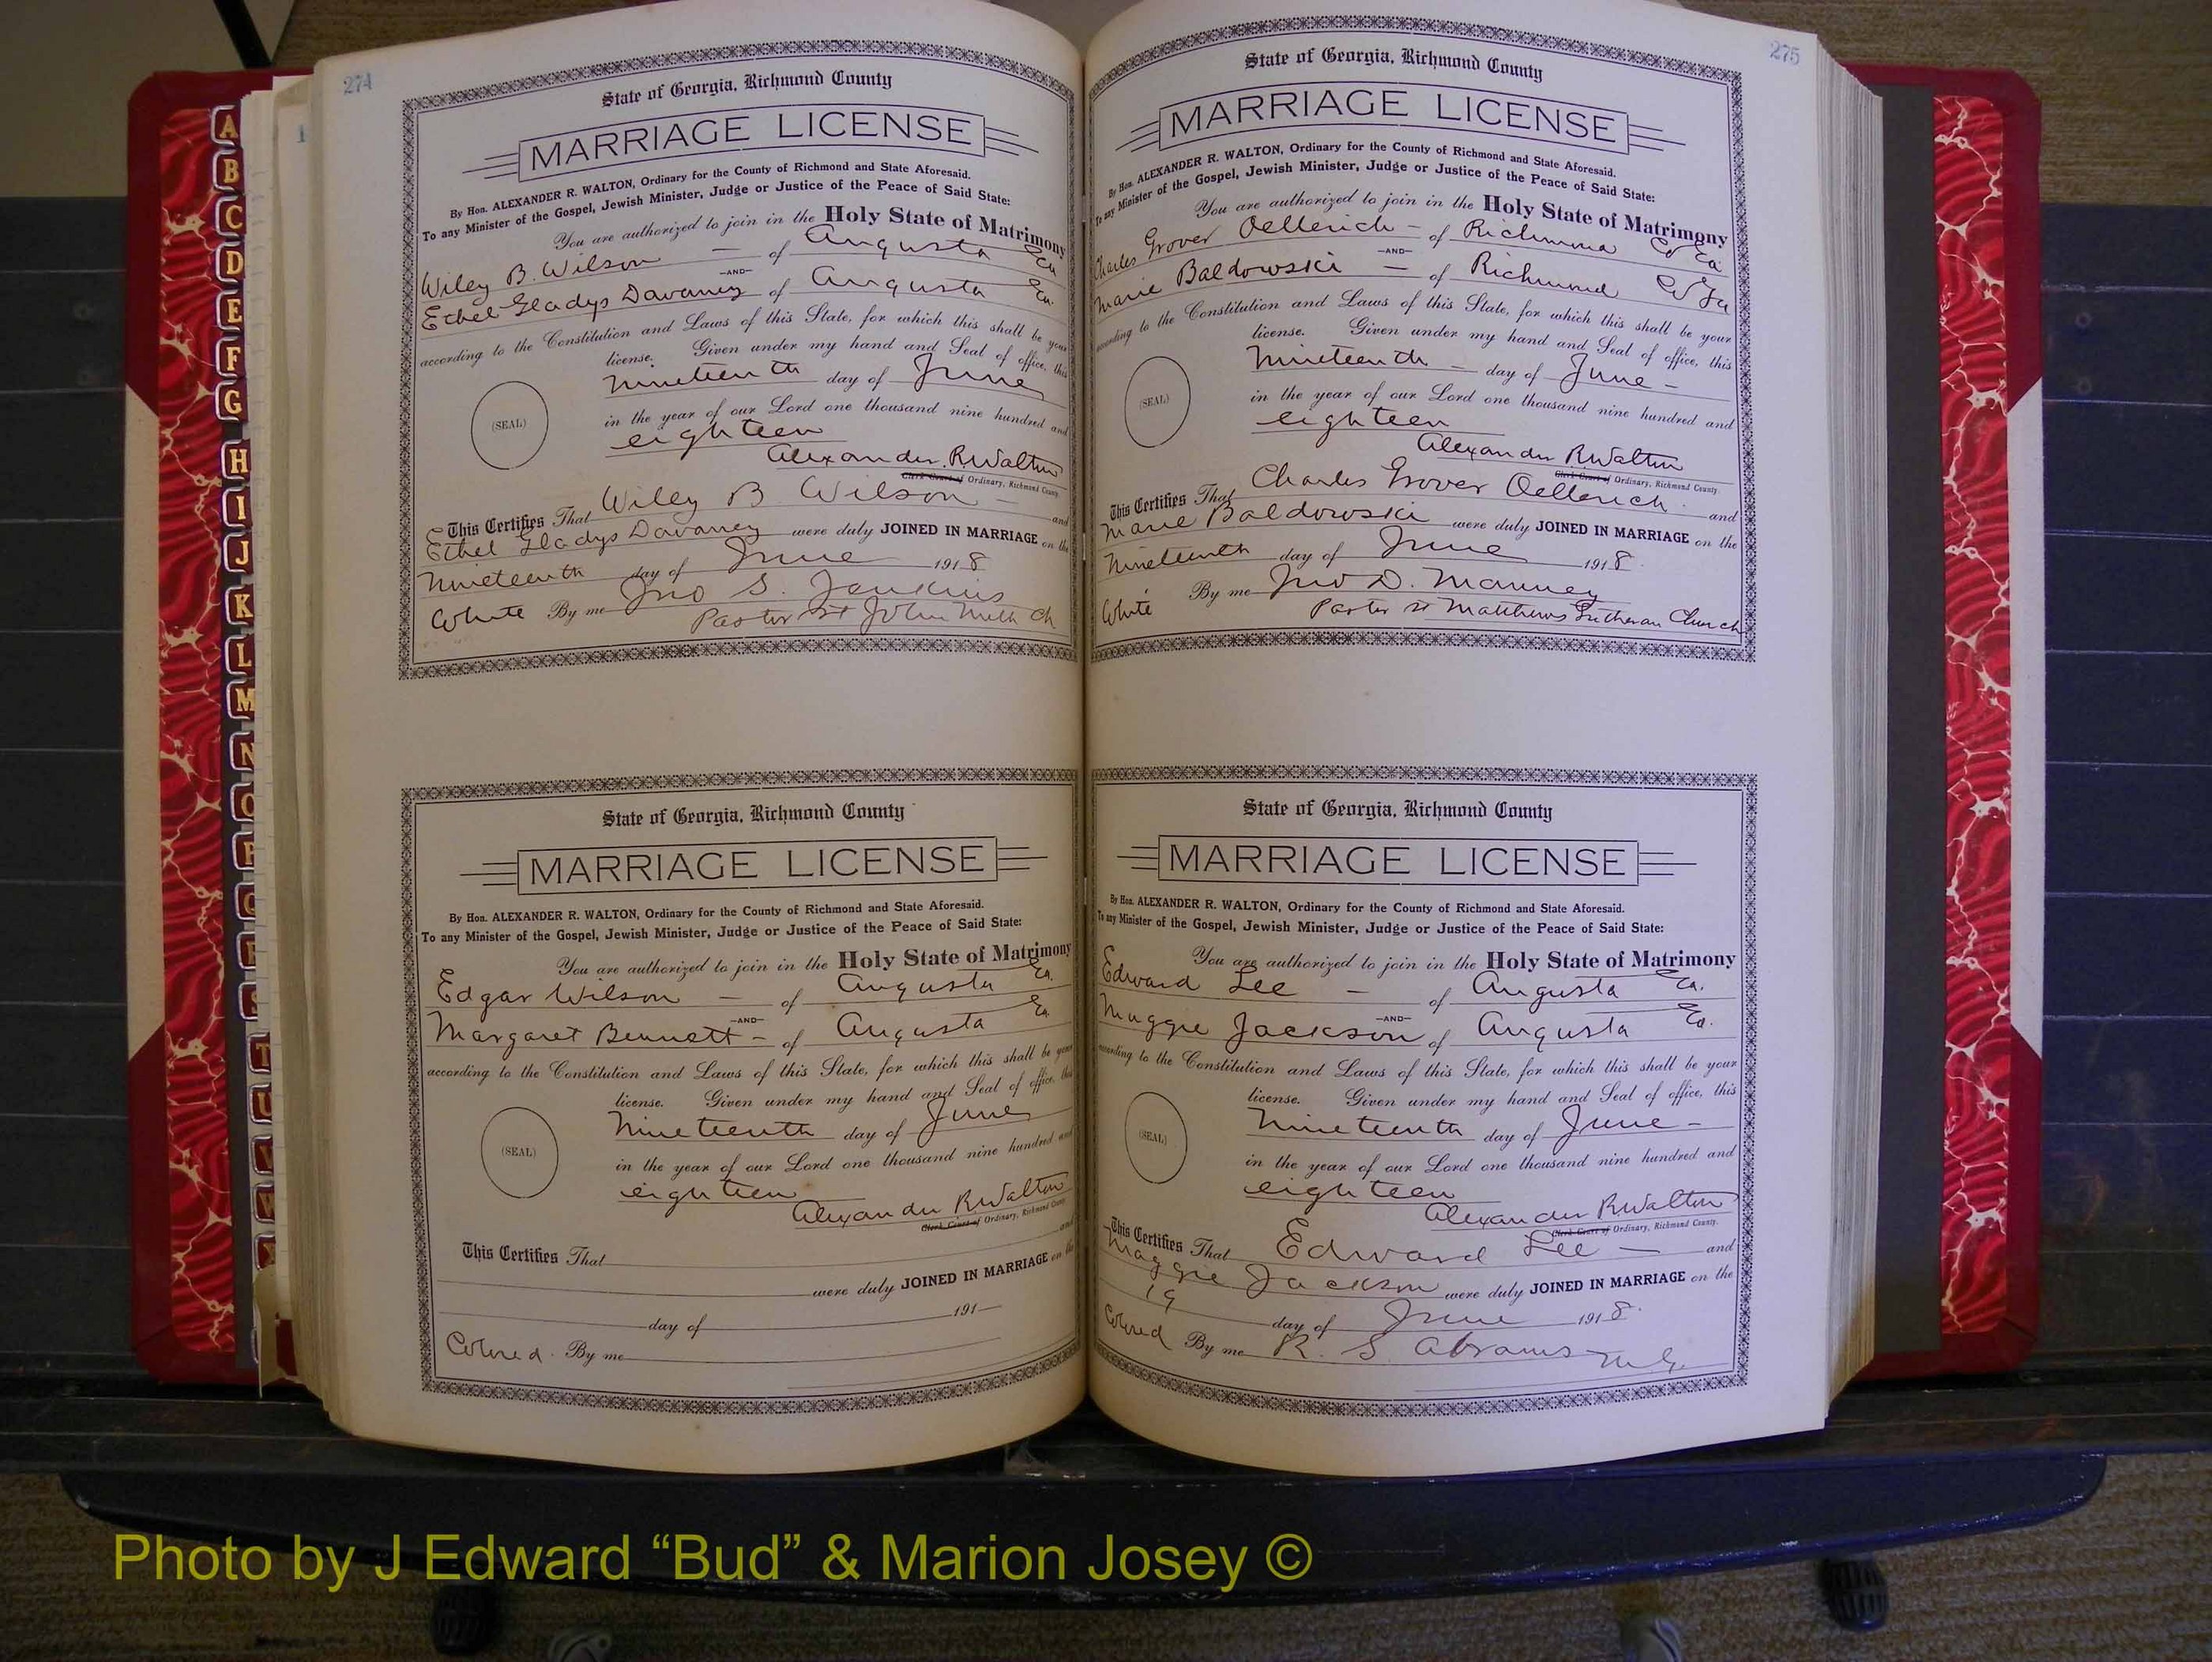 274
State of Georgia, Richmond County
MARRIAGE LICENSE
By Hon. ALEXANDER R. WALTON, Ordinary for the County of Richmond and State Aforesaid.
To any Minister of the Gospel, Jewish Minister, Judge or Justice of the Peace of Said State:
You are authorized to join in the Holy State of Matrimony
Wiley B. Wilson — of Augusta Ga
—AND—
Ethel Gladys Davaney of Augusta Ga.
according to the Constitution and Laws of this State, for which this shall be your
license. Given under my hand and Seal of office, this
nineteenth day of June
(SEAL)
in the year of our Lord one thousand nine hundred and
eighteen
Alexander R Walton
Clerk Court of Ordinary, Richmond County
This Certifies That Wiley B Wilson — and
Ethel Gladys Davaney were duly JOINED IN MARRIAGE on the
Nineteenth day of June 1918
White By me Jno S. Jenkins
Pastor St John Meth Ch
State of Georgia, Richmond County
MARRIAGE LICENSE
By Hon. ALEXANDER R. WALTON, Ordinary for the County of Richmond and State Aforesaid.
To any Minister of the Gospel, Jewish Minister, Judge or Justice of the Peace of Said State:
You are authorized to join in the Holy State of Matrimony
Edgar Wilson — of Augusta Ga.
—AND—
Margaret Bennett – of Augusta Ga.
according to the Constitution and Laws of this State, for which this shall be your
license. Given under my hand and Seal of office, this
nineteenth day of June
(SEAL)
in the year of our Lord one thousand nine hundred and
eighteen
Alexander R Walton
Clerk Court of Ordinary, Richmond County
and
This Certifies That
were duly JOINED IN MARRIAGE on the
day of 191
Colored. By me
275
State of Georgia, Richmond County
MARRIAGE LICENSE
By Hon. ALEXANDER R. WALTON, Ordinary for the County of Richmond and State Aforesaid.
To any Minister of the Gospel, Jewish Minister, Judge or Justice of the Peace of Said State:
You are authorized to join in the Holy State of Matrimony
Charles Grover Oellerich – of Richmond Co Ga
—AND—
Marie Baldowski — of Richmond Co Ga
according to the Constitution and Laws of this State, for which this shall be your
license. Given under my hand and Seal of office, this
nineteenth – day of June –
(SEAL)
in the year of our Lord one thousand nine hundred and
eighteen
Alexander R Walton
Clerk Court of Ordinary, Richmond County.
This Certifies That Charles Grover Oellerich and
Marie Baldowski were duly JOINED IN MARRIAGE on the
Nineteenth day of June 1918.
White By me Jno D. Manney
Pastor St Matthews Lutheran Church
State of Georgia, Richmond County
MARRIAGE LICENSE
By Hon. ALEXANDER R. WALTON, Ordinary for the County of Richmond and State Aforesaid.
To any Minister of the Gospel, Jewish Minister, Judge or Justice of the Peace of Said State:
You are authorized to join in the Holy State of Matrimony
Edward Lee – of Augusta Ga.
—AND—
Maggie Jackson of Augusta Ga.
according to the Constitution and Laws of this State, for which this shall be your
license. Given under my hand and Seal of office, this
nineteenth day of June –
(SEAL)
in the year of our Lord one thousand nine hundred and
eighteen
Alexander R Walton
Clerk Court of Ordinary, Richmond County.
This Certifies That Edward Lee — and
Maggie Jackson were duly JOINED IN MARRIAGE on the
19 day of June 1918.
Colored By me R. S. Abrams M.G.
A
B
C
D
E
F
G
H
I
J
K
L
M
N
O
P
Q
R
S
T
U
V
W
X
Photo by J Edward “Bud” & Marion Josey ©